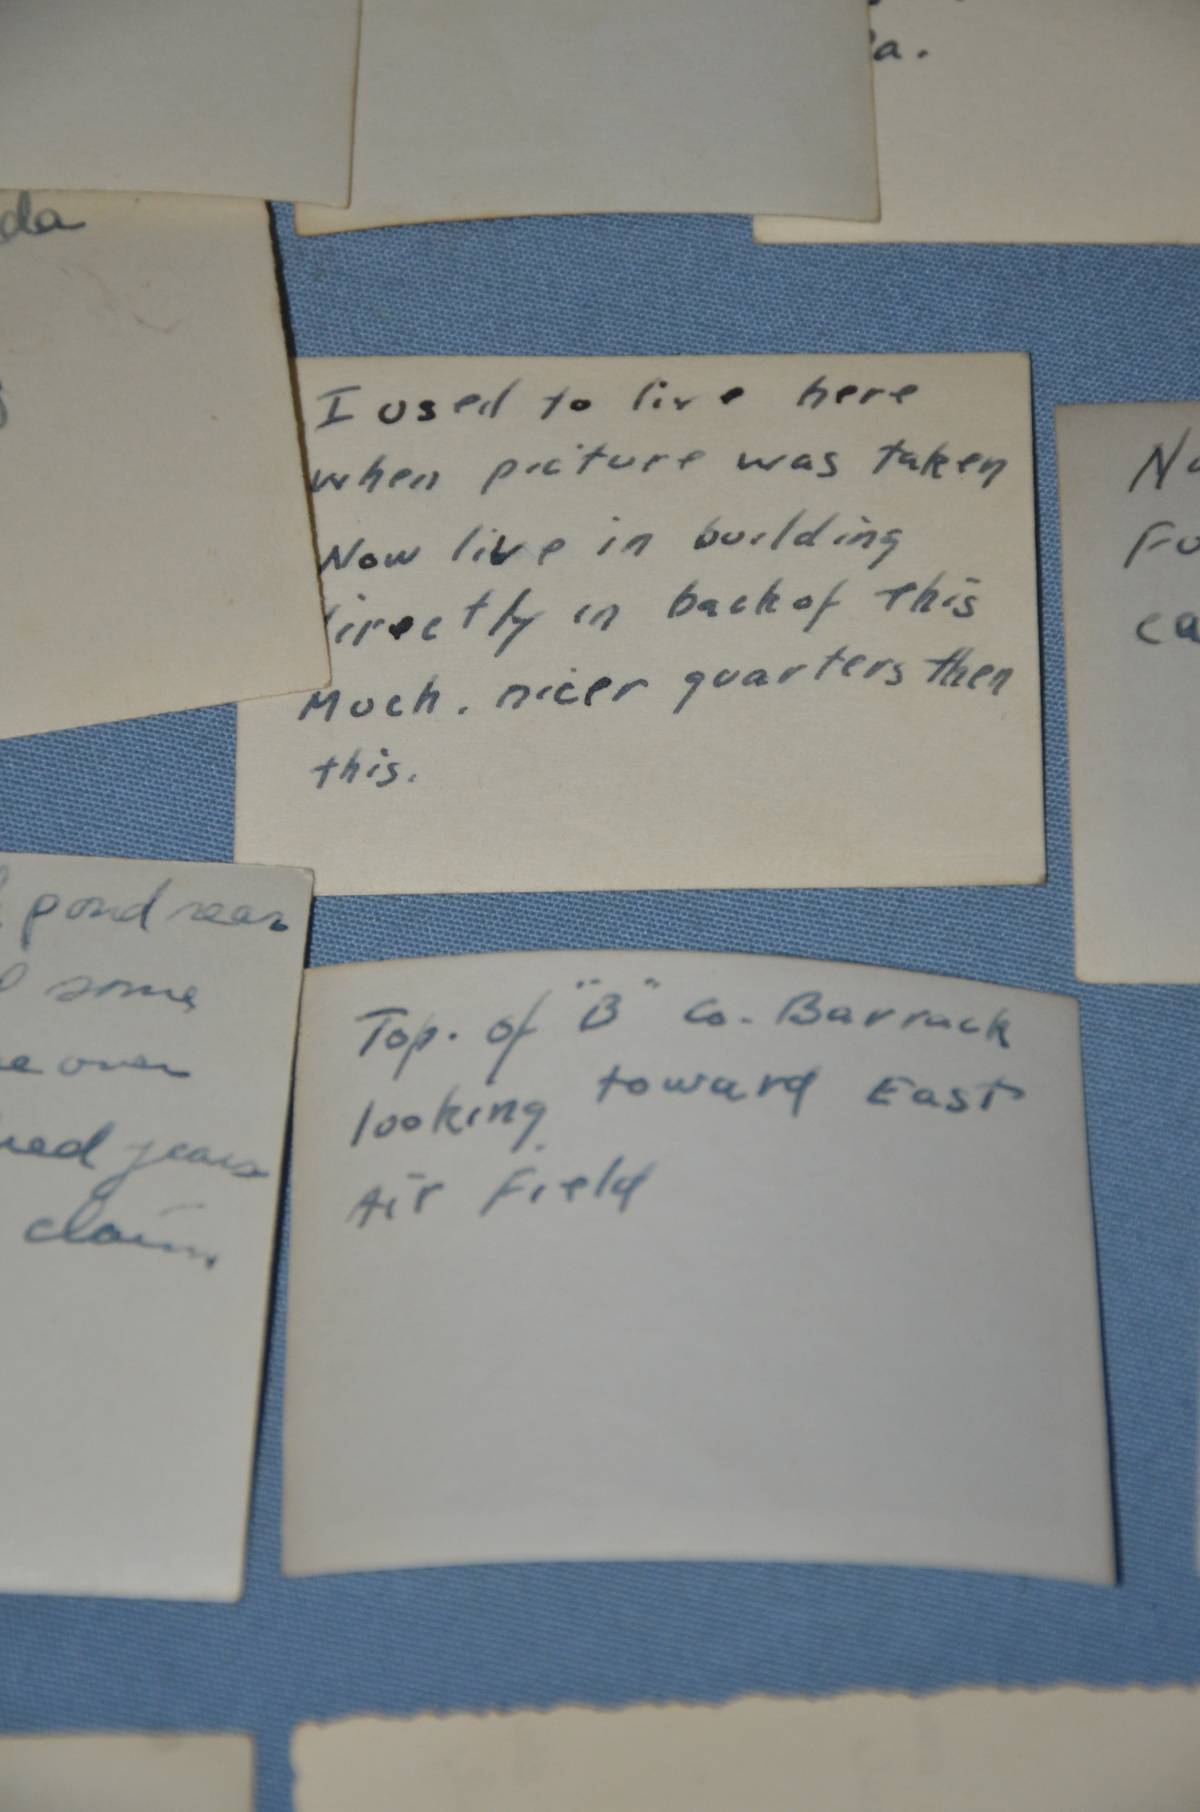 a.
da
I used to live here
when picture was taken
Now live in building
directly in back of this
Much. nicer quarters then
this.
Fo
ca
pond near
some
over
years
claim
Top. of "B" Co. Barrack
looking toward East
Air Field